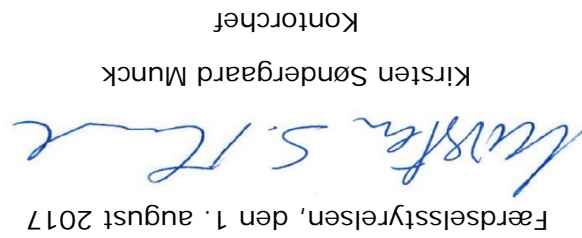 Færdselsstyrelsen, den 1. august 2017
Kirsten S. Munck
Kirsten Søndergaard Munck
Kontorchef